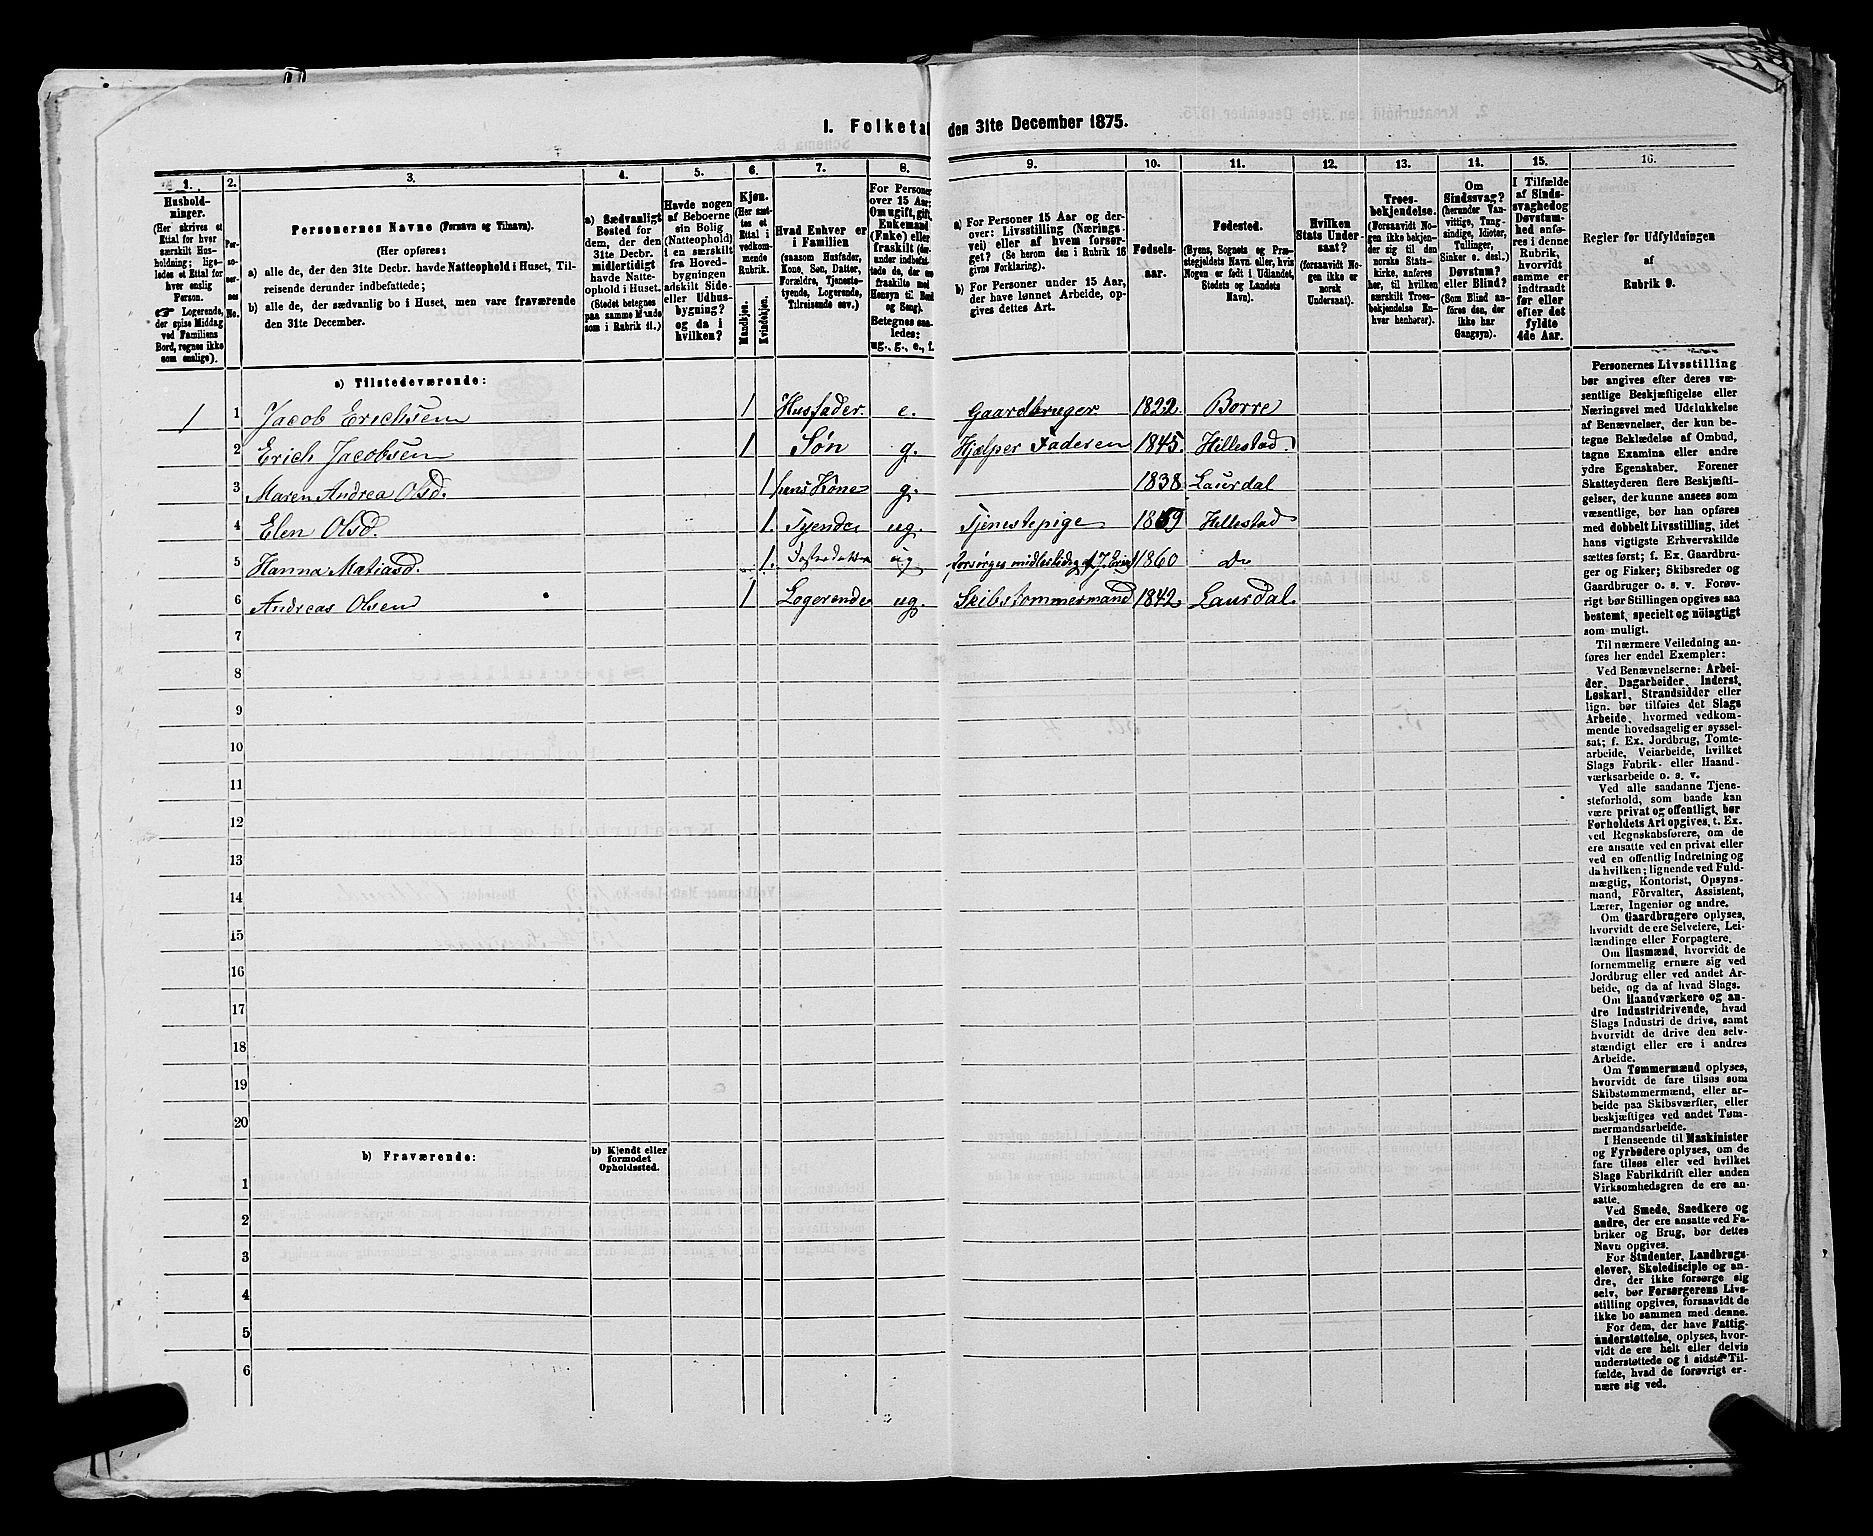 1. Folketal den 31te December 1875.
1.
Hushold-
ninger.
(Her skrives et
Ettal for hver
særskilt Hus-
holdning; lige-
ledes et Ettal for
hver enslig
Person.
☞ Logerende,
der spise Middag
ved Familiens
Bord, regnes ikke
som enslige).
2.
Per-
so-
ner-
nes
No.
3.
Personernes Navne (Fornavn og Tilnavn).
(Her opføres:
a) alle de, der den 31te Decbr. havde Natteophold i Huset, Til-
reisende derunder indbefattede;
b) alle de, der sædvanlig bo i Huset, men vare fraværende
den 31te December.
4.
a) Sædvanligt
Bosted for
dem, der den
31te Decbr.
midlertidigt
havde Natte-
ophold i Huset.
(Stedet betegnes
paa samme Maade
som i Rubrik 11.)
5.
Havde nogen
af Beboerne
sin Bolig
(Natteophold)
i en særskilt
fra Hoved-
bygningen
adskilt Side-
eller Udhus-
bygning?
og da i
hvilken?
6.
Kjøn.
(Her sæt-
tes et
Ettal i
vedkom-
mende
Rubrik.
Mandkjøn.
Kvindekjøn.
7.
Hvad Enhver er
i Familien
(saasom Husfader,
Kone, Søn, Datter,
Forældre, Tjeneste-
tyende, Logerende,
Tilreisende osv.)
8.
For Personer
over 15 Aar:
Om ugift, gift,
Enkemand
(Enke) eller
fraskilt (der-
under indbefat-
tede de, der ere
fraskilte med
Hensyn til Bord
og Seng).
Betegnes saa-
ledes:
ug., g., e., f.
9.
a) For Personer 15 Aar og der-
over: Livsstilling (Nærings-
vei) eller af hvem forsør-
get? (Se herom den i Rubrik 16
givne Forklaring).
b) For Personer under 15 Aar,
der have lønnet Arbeide, op-
gives dettes Art.
10.
Fødsels-
aar.
11.
Fødested.
(Byens, Sognets og Præ-
stegjeldets Navn eller, hvis
Nogen er født i Udlandet,
Stedets og Landets
Navn).
12.
Hvilken
Stats Under-
saat?
(forsaavidt No-
gen ikke er
norsk
Undersaat).
13.
Troes-
bekjendelse.
(Forsaavidt No-
gen ikke bekjen-
der sig til den
norske Stats-
kirke, anføres
her, til hvilken
særskilt Troes-
bekjendelse En-
hver henhører).
14.
Om
Sindssvag?
(herunder Van-
vittige, Tung-
sindige, Idioter,
Tullinger,
Sinker o. desl.)
Døvstum?
eller Blind?
(Som Blind an-
føres den, der
ikke har
Gangsyn).
15.
I Tilfælde
af Sinds-
svaghed og
Døvstum-
hed anfø-
res i denne
Rubrik,
hvorvidt
samme er
indtraadt
før eller
efter det
fyldte
4de Aar.
16.
Regler for Udfyldningen
af
Rubrik 9.
a) Tilstedeværende:
1 1 Jacob Erichsen 1 Husfader. e. Gaardbruger 1822. Borre
2 Erich Jacobsen 1 Søn g. Hjælper Faderen 1845. Hillestad.
3 Maren Andrea Olsd. 1 hans Kone g. 1838 Laurdal
4 Elen Olsd. 1. Tyende ug. Tjenestepige 1859 Hillestad
5 Hanna Matiasd. 1. ug forsørges midlertidig af J. 1860 Do
6 Andreas Olsen 1 Logerende ug. Skibstømmermand 1842 Laurdal.
7
8
9
10
11
12
13
14
15
16
17
18
19
20
b) Fraværende:
b) Kjendt eller
formodet
Opholdssted.
1
2
3
4
5
6
Personernes Livsstilling
bør angives efter deres væ-
sentlige Beskjæftigelse eller
Næringsvei med Udelukkelse
af Benævnelser, der kun be-
tegne Beklædelse af Ombud,
tagne Examina eller andre
ydre Egenskaber. Forener
Skatteyderen flere Beskjæfti-
gelser, der kunne ansees som
væsentlige, bør han opføres
med dobbelt Livsstilling, idet
hans vigtigste Erhvervskilde
sættes først; f. Ex. Gaardbru-
ger og Fisker; Skibsreder og
Gaardbruger o. s. v. Forøv-
rigt bør Stillingen opgives saa
bestemt, specielt og nöiagtigt
som muligt.
Til nærmere Veiledning an-
føres her endel Exempler:
Ved Benævnelserne: Arbei-
der, Dagarbeider, Inderst,
Løskarl, Strandsidder eller
lign. bør tilføies det Slags
Arbeide, hvormed vedkom-
mende hovedsagelig er syssel-
sat; f. Ex. Jordbrug, Tomte-
arbeide, Veiarbeide, hvilket
Slags Fabrik- eller Haand-
værksarbeide o. s. v.
Ved alle saadanne Tjene-
steforhold, som baade kan
være privat og offentligt, bør
Forholdets Art opgives, t. Ex.
ved Regnskabsførere, om de
ere ansatte ved en privat eller
ved en offentlig Indretning og
da hvilken; lignende ved Fuld-
mægtig, Kontorist, Opsyns-
mand, Förvalter, Assistent,
Lærer, Ingeniør og andre.
Om Gaardbrugere oplyses,
hvorvidt de ere Selveiere, Lei-
lændinge eller Forpagtere.
Om Husmænd, hvorvidt de
fornemmelig ernære sig ved
Jordbrug eller ved andet Ar-
beide, og da af hvad Slags.
Om Haandværkere og an-
dre Industridrivende, hvad
Slags Industri de drive, samt
hvorvidt de drive den selv-
stændigt eller ere i andres
Arbeide.
Om Tømmermænd oplyses,
hvorvidt de fare tilsøs som
Skibstømmermænd, eller ar-
beide paa Skibsværfter, eller
beskjæftiges ved andet Tøm-
mermandsarbeide.
I Henseende til Maskinister
og Fyrbødere oplyses, om de
fare tilsøs eller ved hvilket
Slags Fabrikdrift eller anden
Virksomhedsgren de ere an-
satte.
Ved Smede, Snedkere og
andre, der ere ansatte ved Fa-
briker og Brug, bør dettes
Navn opgives.
For Studenter, Landbrugs-
elever, Skoledisciple og an-
dre, der ikke forsørge sig
selv, bør Forsørgerens Livs-
stilling opgives, forsaavidt de
ikke bo sammen med denne.
For dem, der have Fattig-
understøttelse, oplyses, hvor-
vidt de ere helt eller delvis
understøttede og i sidste Til-
fælde, hvad de forøvrigt er-
nære sig ved.